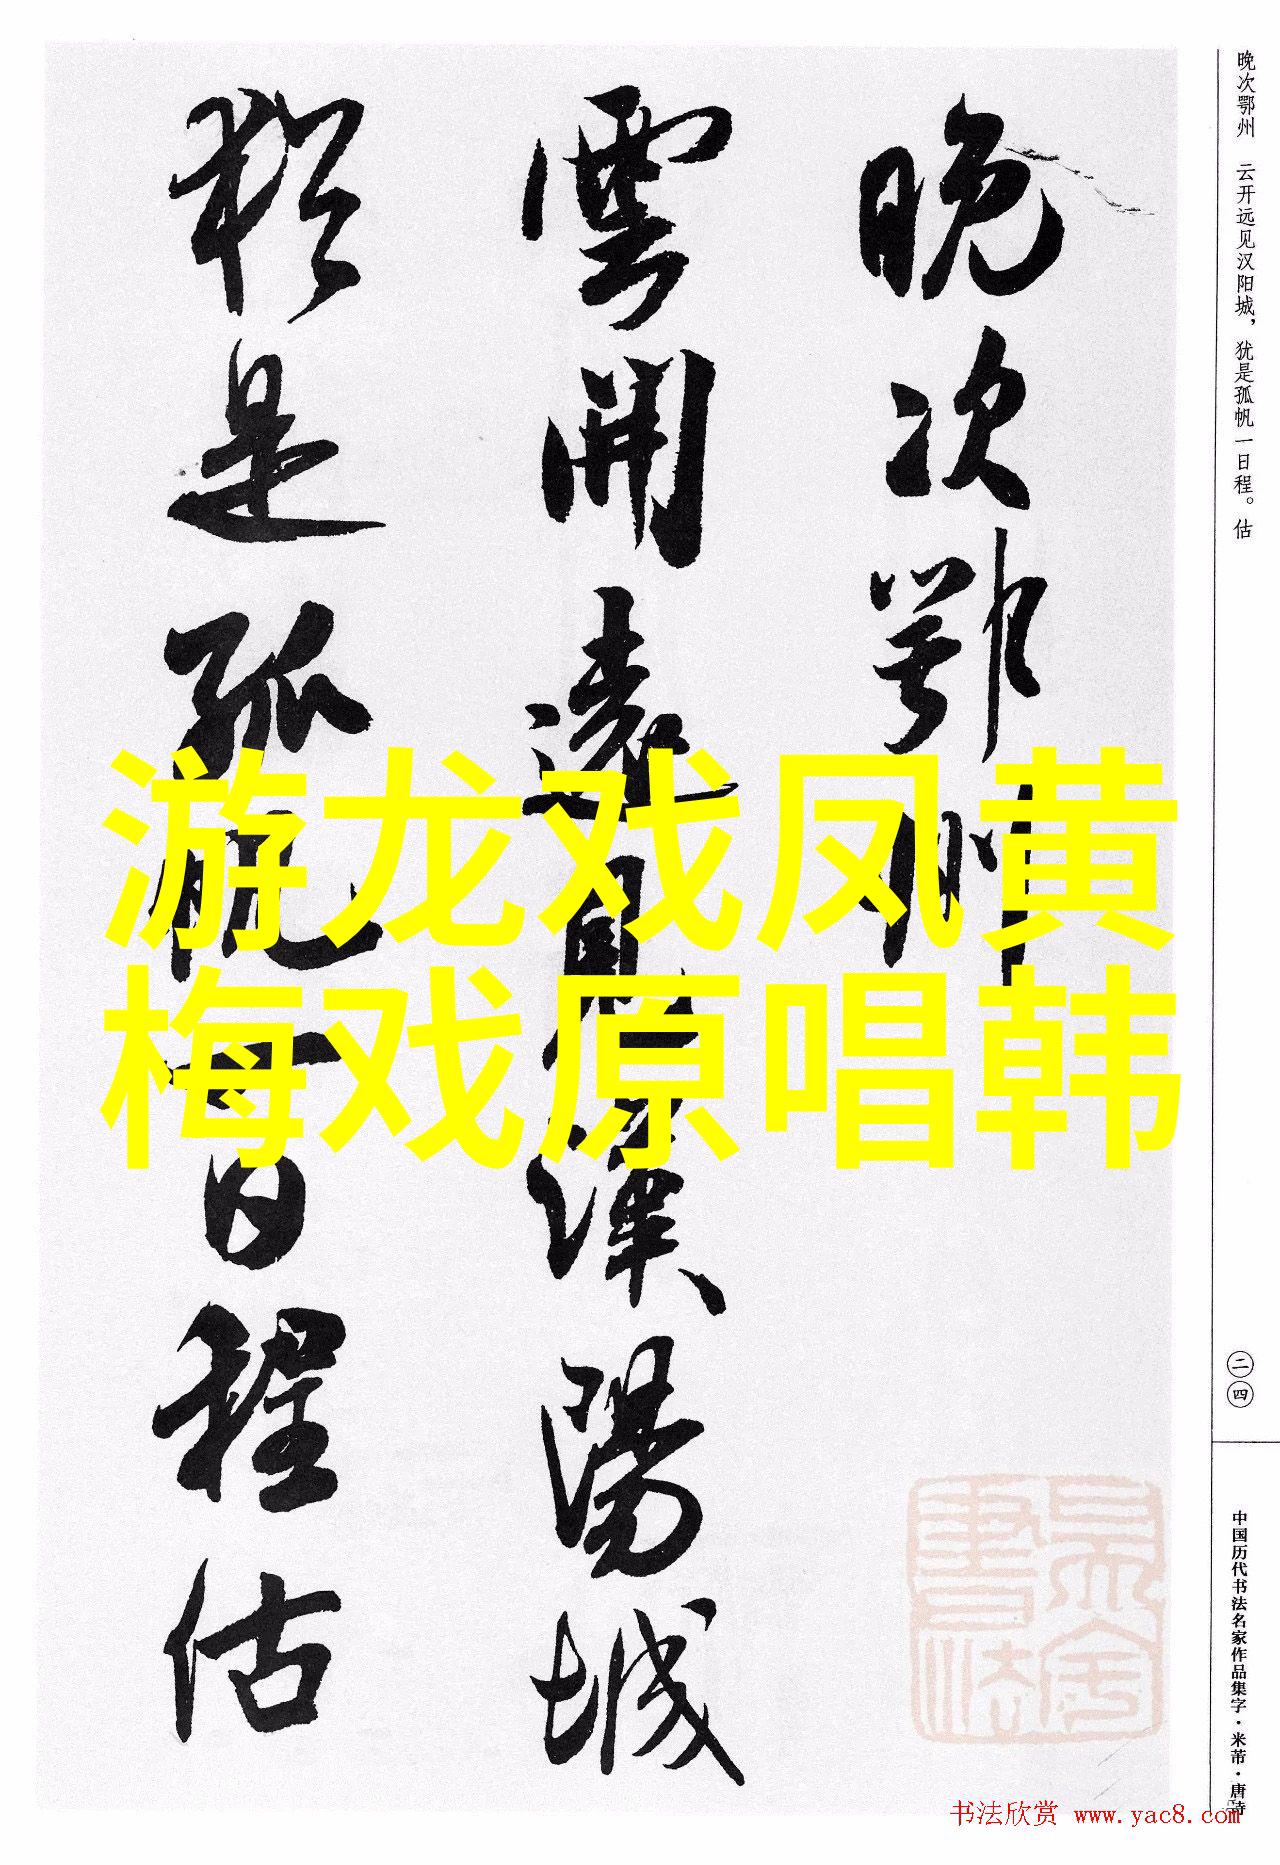 晚次鄂州 云开远见汉阳城，犹是孤帆一日程。估
晚次鄂州
雲開遠見漢陽城
猶是孤帆一日程估
游龙戏凤黄
梅戏原唱韩
二四
中国历代书法名家作品集字·米芾·唐诗
书法欣赏 www.yac8.com